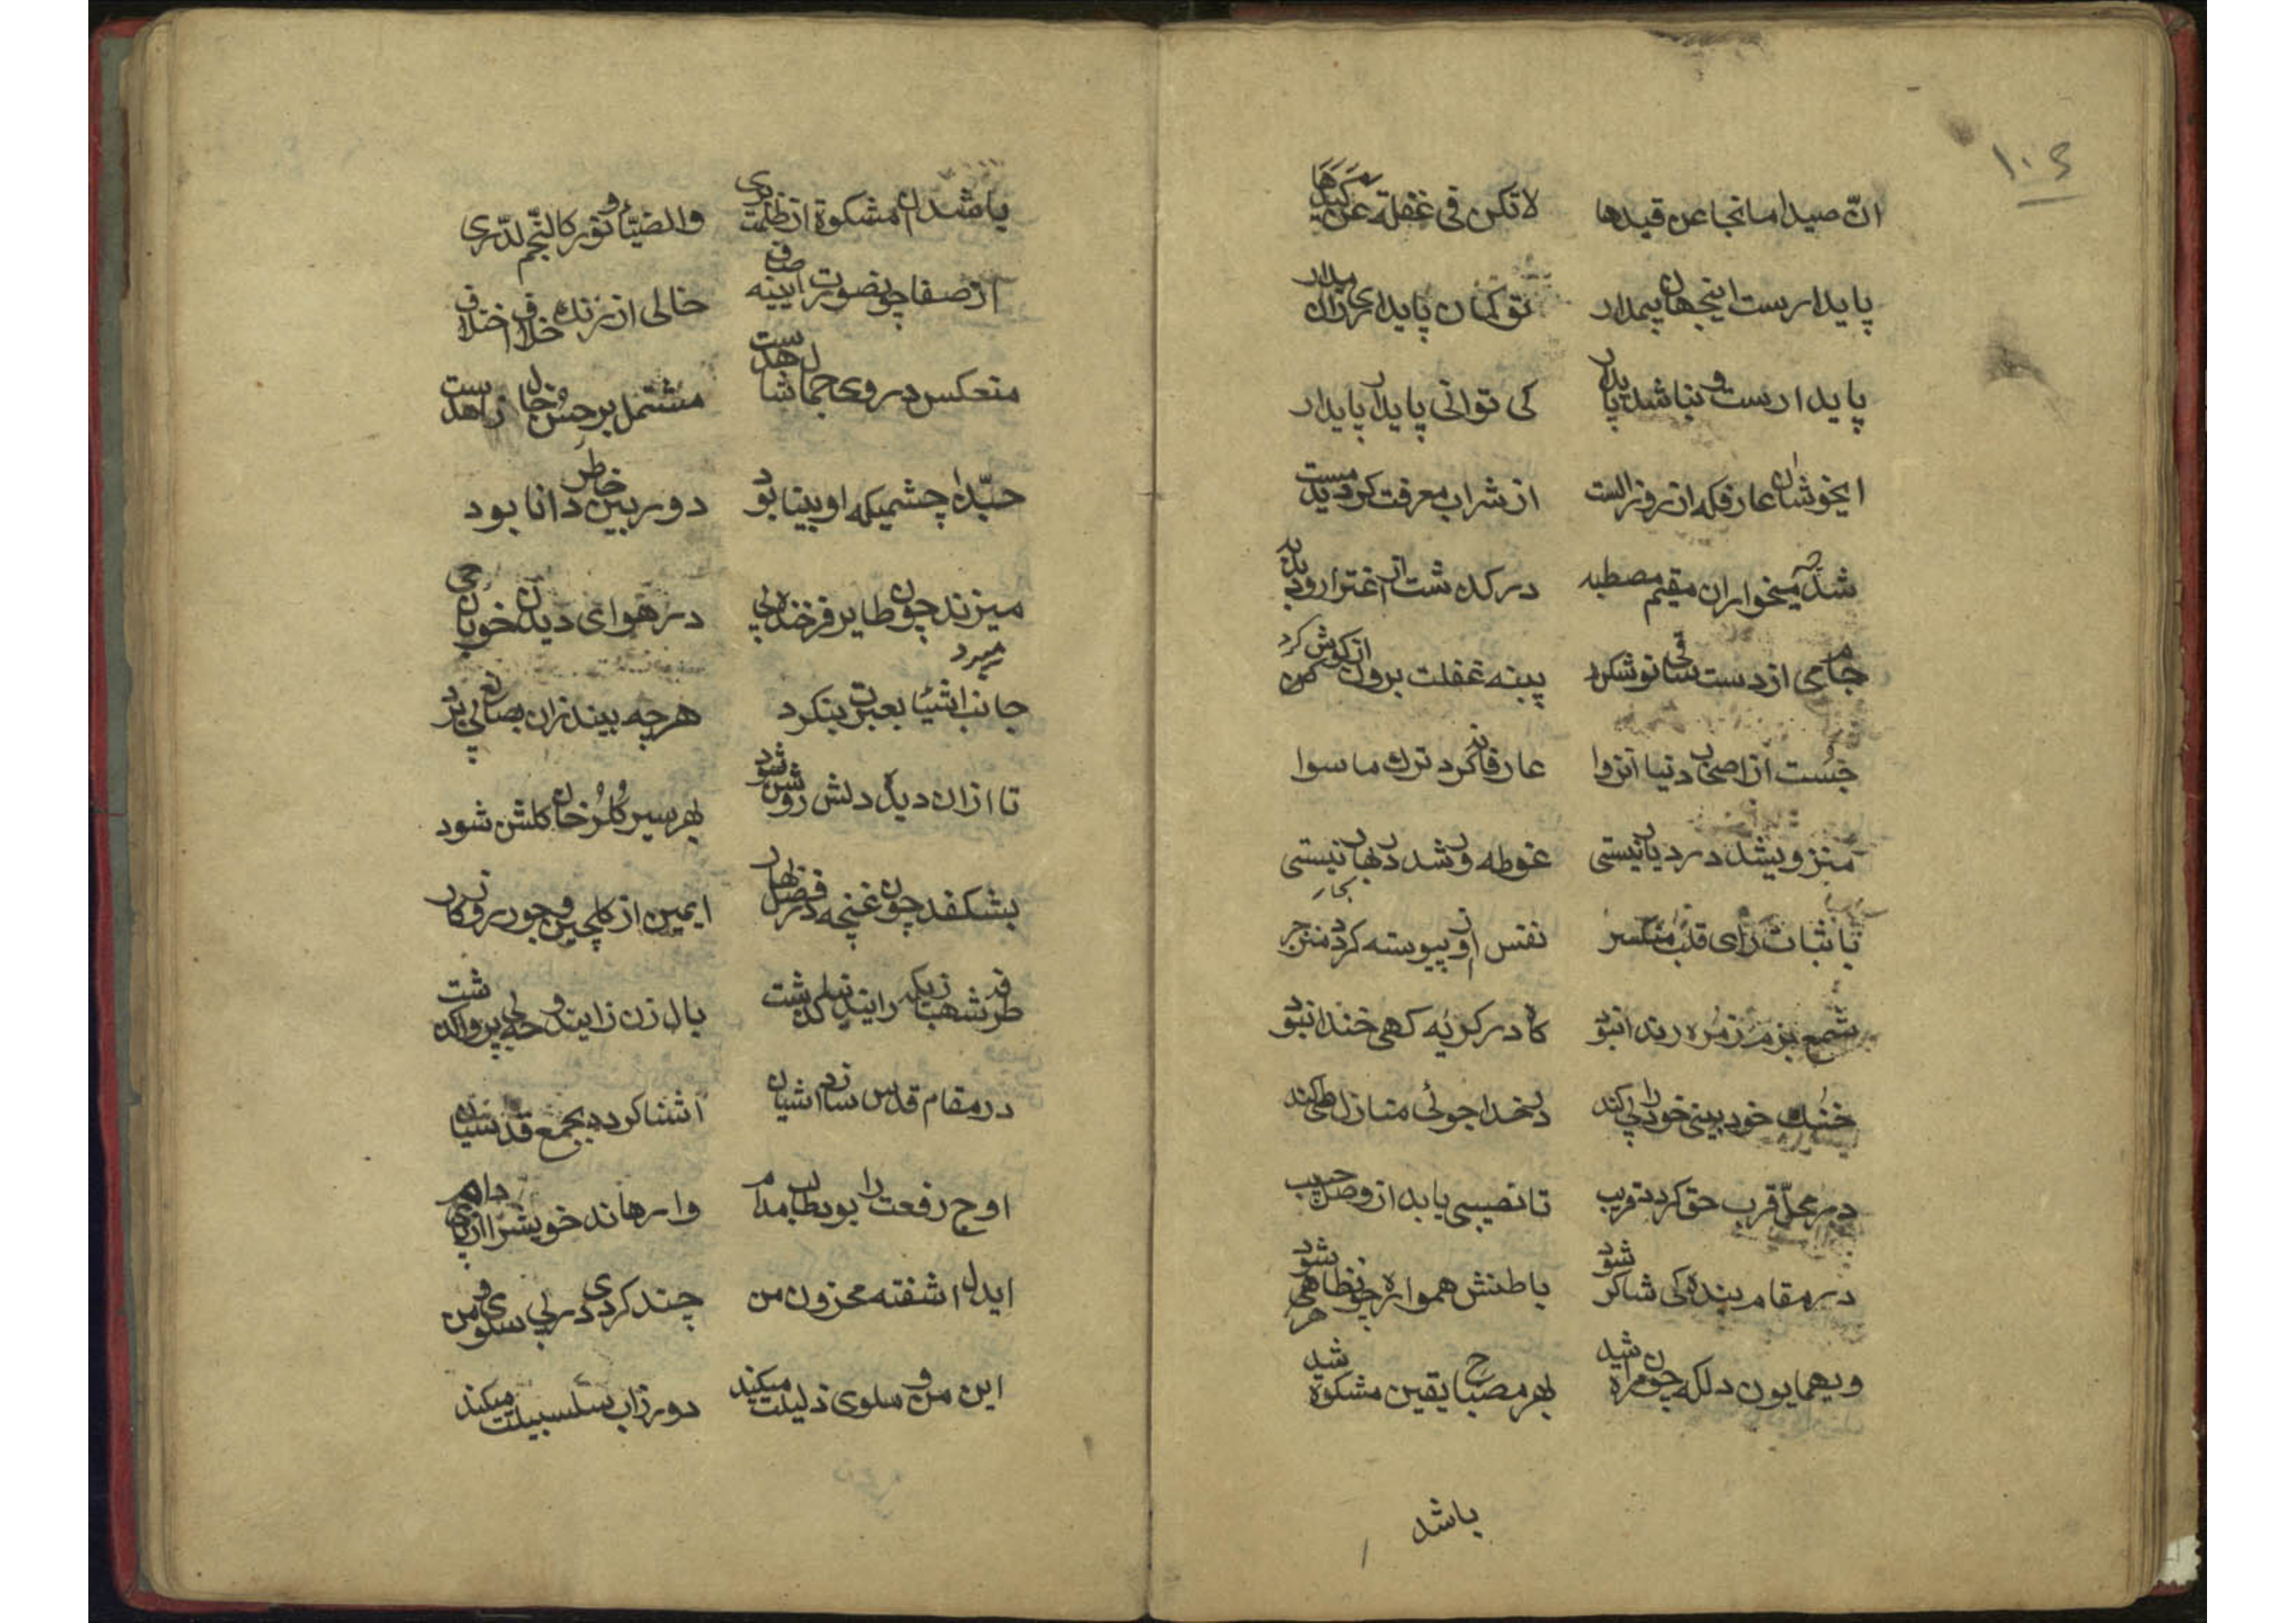 ۱۰۶
انّ صیدا ما نجا عن قیدها لا تکن فی غفلة عن کیدها
پایدارست اینجهان پیمدار تو کمان پایداری زان مدار
پایدارست و نباشد پایدار کی توانی پایدار پایدار
ایخوشا ان عارفکه از روز الست از شراب معرفت کردید مست
شد چه میخواران مقیم مصطبه درکدشت از اغترار و
جامی از دست ساقی نوشکرد پنبه غفلت برون از کوش کرد
جست از اصحاب دنیا انزوا عارفانه کرد ترک ما سوا
منزوی شد در دیار نیستی غوطه ور شد در بحار نیستی
با ثبات رای قلب منکسر نفس او پیوسته کرد منزجر
شمع بزم زمره رندان بود کاه در کریه کهی خندان بود
خنک خود بینی خود را پی کند در خدا جوئی منازل طی کند
در محلّ قرب حق کردد قریب تا نصیبی یابد از وصل حبیب
در مقام بندکی شاکر شود باطنش همواره چون ظاهر شود
ویهمایون دلکه چون مراة شد بهر مصباح یقین مشکوة شد
باشد
باشد ان مشکوة از ظلمت بری والضیاء و نور کالنجم لدّری
از صفا چون صورت ایینه صاف خالی از زنک خلاف اختلاف
منعکس در وی جمال شاهدست مشتمل بر حسن و خال زاهدست
حبّذا چشمیکه او بینا بود دوربین خاطر دانا بود
میزند چون طایر فرخنده پی در هوای دیدن خوبان
جانب اشیا بعبرت بنکرد هرچه بیند زان بصانع پی برد
تا ازان دیده دلش روشن شود بهر سیر کلرخان کلشن شود
بشکفد چون غنچه در فصل بهار ایمن از کلچین و جور روزکار
بال زن زایند و
در مقام قدس سازد اشیان اشنا کردد بجمع قدسیان
اوج رفعت را بود طالب مدام وارهاند خویشرا از پای دام
ایدل اشفته محزون من چند کردی در پی سلوی و من
این من و سلوی ذلیلت میکند دور زاب سلسبیلت میکند